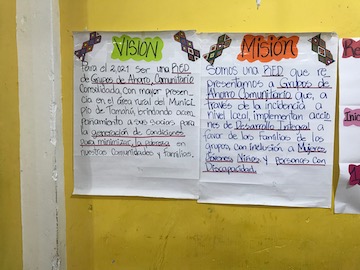 VISION
Para el 2,021 ser una RED
de Grupos de Ahorro Comunitario
Consolidada, con mayor presen_
cia en el área rural del Munici_
pio de Tamahú brindando acom_
pañamiento a sus socias para
la generación de condiciones
para minimizar la pobreza en
nuestras Comunidades y familias.
MISION
Somos una RED que re_
presentamos a Grupos de
Ahorro Comunitario que, a
través de la incidencia a
nivel local, implementan accio
nes de Desarrollo Integral a
favor de las familias de los
grupos, con inclusión a Mujeres
Jóvenes, Niñes y Personas con
Discapacidad.